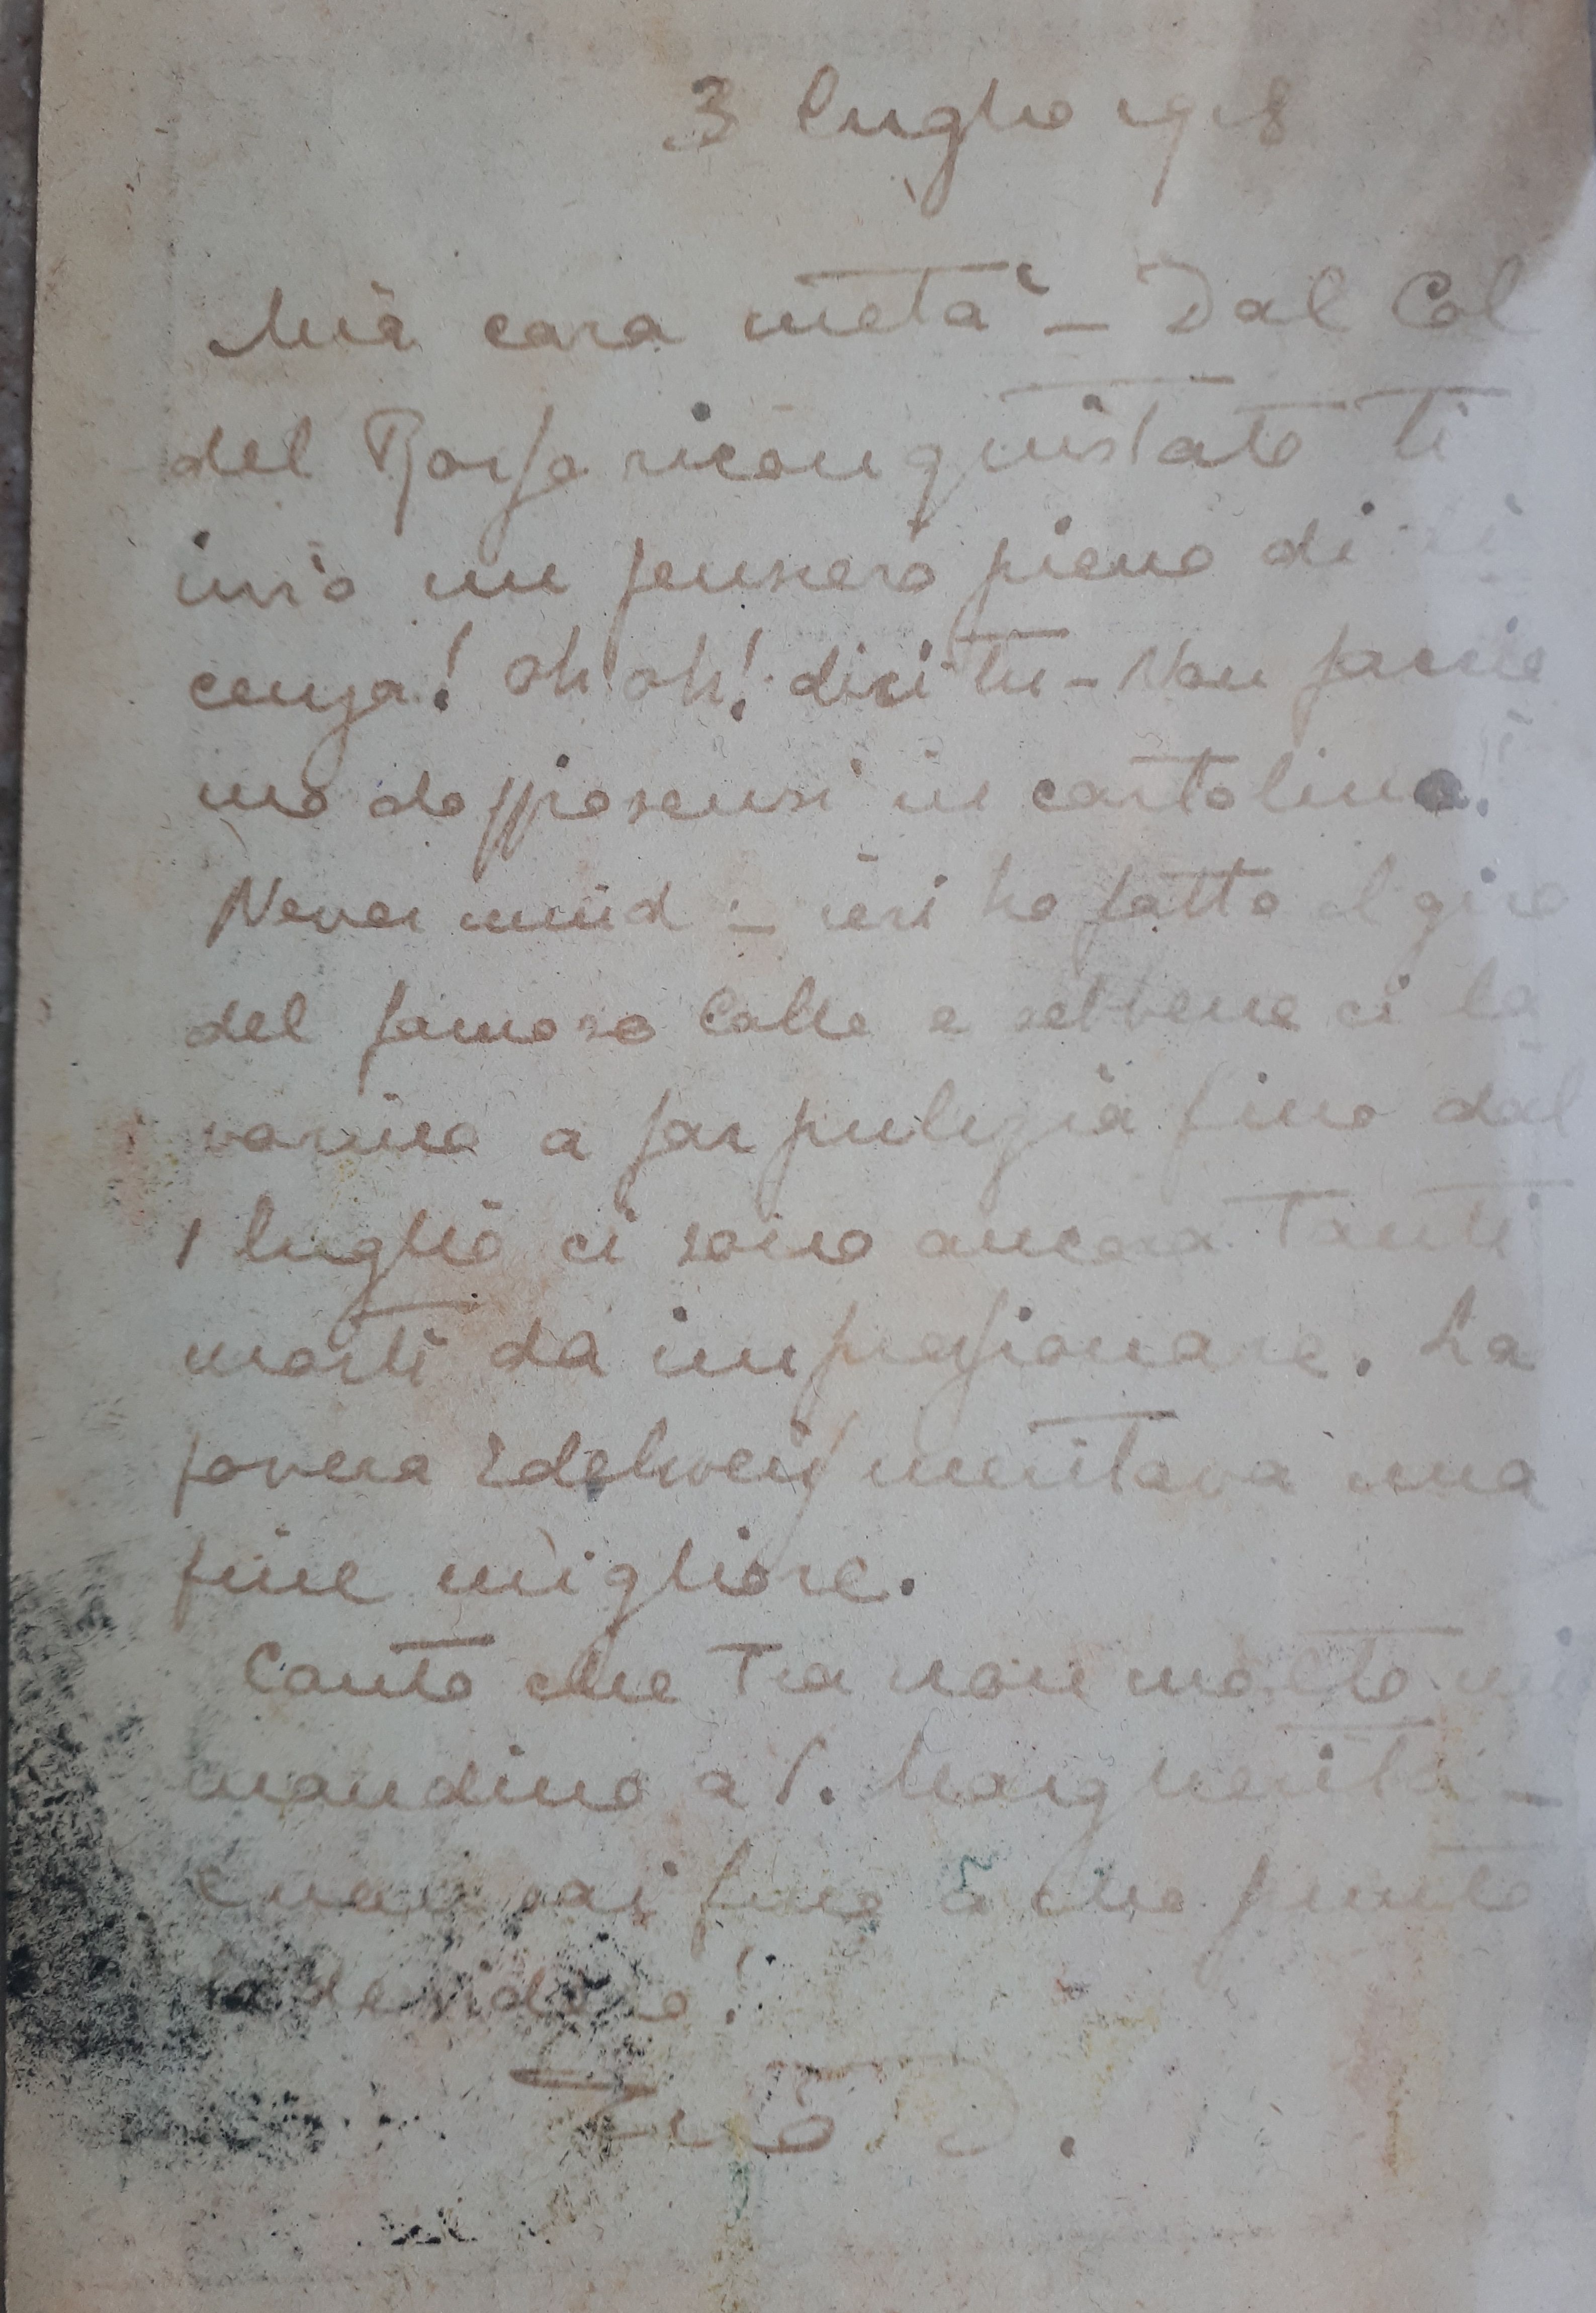 3 luglio 1918
Mia cara metà - Dal Col
del Rosso riconquistato ti
invio un pensiero pieno di li
cenza! oh oh! dici tu - Non faccia
mo doppiosensi in cartolina.
Never mind - ieri ho fatto il giro
del famoso Colle e sebbene ci la
vorino a far pulizia fino dal
1 luglio ci sono ancora tanti
morti da impressionare. La
povera Edelweiss meritava una
fine migliore.
Conto che tra non molto mi
mandino a S. Margherita -
e non sai fino a che punto
lo desidero!